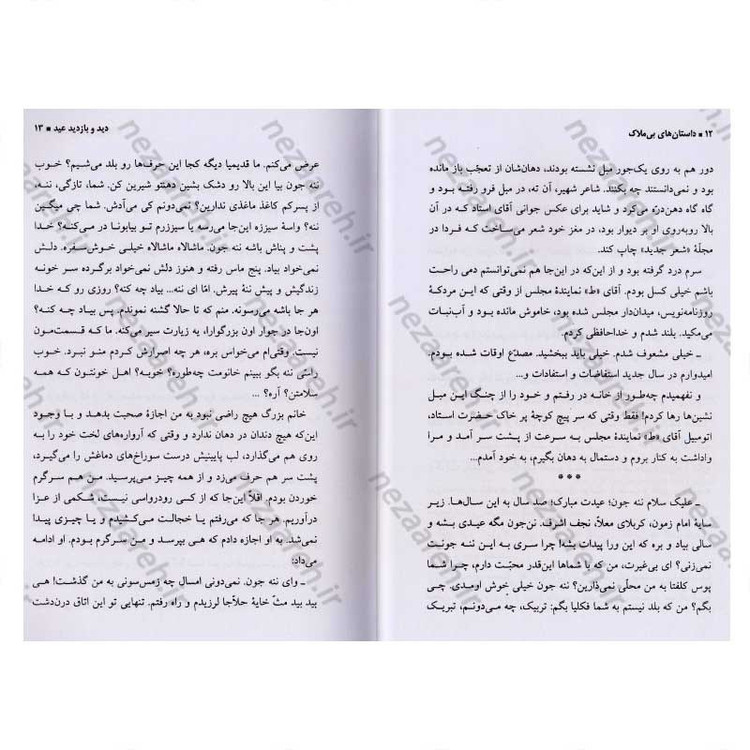 ۱۲ ■ داستان‌های بی‌ملاک
دور هم به روی یک‌جور مبل نشسته بودند، دهان‌شان از تعجّب باز مانده
بود و نمی‌دانستند چه بکنند. شاعر شهیر، آن ته، در مبل فرو رفته بود و
گاه گاه دهن‌درّه می‌کرد و شاید برای عکس جوانی آقای استاد که در آن
بالا روبه‌روی او بر دیوار بود، در مغز خود شعر می‌ساخت که فردا در
مجلّهٔ «شعر جدید» چاپ کند.
سرم درد گرفته بود و از این‌که در این‌جا هم نمی‌توانستم دمی راحت
باشم خیلی کسل بودم. آقای «ط» نمایندهٔ مجلس از وقتی که این مردکهٔ
روزنامه‌نویس، میدان‌دار مجلس شده بود، خاموش مانده بود و آب‌نبات
می‌مکید. بلند شدم و خداحافظی کردم.
ـ خیلی مشعوف شدم. خیلی باید ببخشید. مصدّع اوقات شده بودم.
امیدوارم در سال جدید استفاضات و استفادات و...
و نفهمیدم چه‌طور از خانه در رفتم و خود را از چنگ این مبل
نشین‌ها رها کردم! فقط وقتی که سر پیچ کوچهٔ پر خاک حضرت استاد،
اتومبیل آقای «ط» نمایندهٔ مجلس به سرعت از پشت سر آمد و مرا
واداشت به کنار بروم و دستمال به دهان بگیرم، به خود آمدم...
***
ـ علیک سلام ننه جون؛ عیدت مبارک؛ صد سال به این سال‌ها. زیر
سایهٔ امام زمون، کربلای معلّا، نجف اشرف. نن‌جون مگه عیدی بشه و
سالی بیاد و بره که این ورا پیدات بشه! چرا سری به این ننه جونت
نمی‌زنی؟ ای بی‌غیرت، من که با شماها این‌قدر محبّت دارم، چرا شما
پوس کلفتا به من محلّی نمی‌ذارین؟ ننه جون خیلی خوش اومدی. چی
بگم؟ من که بلد نیستم به شما فکلیا بگم: تربیک، چه می‌دونم، تبریک
دید و بازدید عید ■ ۱۳
عرض می‌کنم. ما قدیمیا دیگه کجا این حرف‌ها رو بلد می‌شیم؟ خوب
ننه جون بیا این بالا رو دشک بشین دهنتو شیرین کن. شما، تازگی، ننه،
از پسرکم کاغذ ماغذی ندارین؟ نمی‌دونم کی می‌آدش. شما چی میگین
ننه؟ واسهٔ سیزده این‌جا می‌رسه یا سیزرم تو بیابونا در می‌کنه؟ خدا
پشت و پناش باشه ننه جون. ماشالاه ماشالاه خیلی خوش‌سفره. دلش
نمی‌خواد بیاد. پنج ماس رفته و هنوز دلش نمی‌خواد برگرده سر خونه
زندگیش و پیش ننهٔ پیرش. امّا ای ننه... بیاد چه کنه؟ روزی رو که خدا
هر جا باشه می‌رسونه. منم که تا حالا گشنه نموندم. پس بیاد چه کنه؟
اون‌جا در جوار اون بزرگوارا، یه زیارت سیر می‌کنه. ما که قسمت‌مون
نیست. وقتی‌ام می‌خواس بره، هر چه اصرارش کردم منو نبرد. خوب
راستی ننه بگو ببینم خانومت چه‌طوره؟ خوبه؟ اهل خونتون که همه
سلامتن؟ آره؟ ...
خانم بزرگ هیچ راضی نبود به من اجازهٔ صحبت بدهد و با وجود
این‌که هیچ دندان در دهان ندارد و وقتی که آرواره‌های لخت خود را
روی هم می‌گذارد، لب پایینش درست سوراخ‌های دماغش را می‌گیرد،
پشت سر هم حرف می‌زد و از همه چیز می‌پرسید. من هم سرگرم
خوردن بودم. اقلاً این‌جا که از کسی رودرواسی نیست، شکمی از عزا
درآوریم. هر جا که می‌رفتم یا خجالت می‌کشیدم و یا چیزی پیدا
نمی‌شد. به او اجازه دادم که هی بپرسد و من سرگرم بودم. او ادامه
می‌داد:
ـ وای ننه جون. نمی‌دونی امسال چه زمس‌سونی به من گذشت! هی
بید بید مثّ خایهٔ حلاّجا لرزیدم و راه رفتم. تنهایی تو این اتاق درن‌دشت
nezaareh.ir